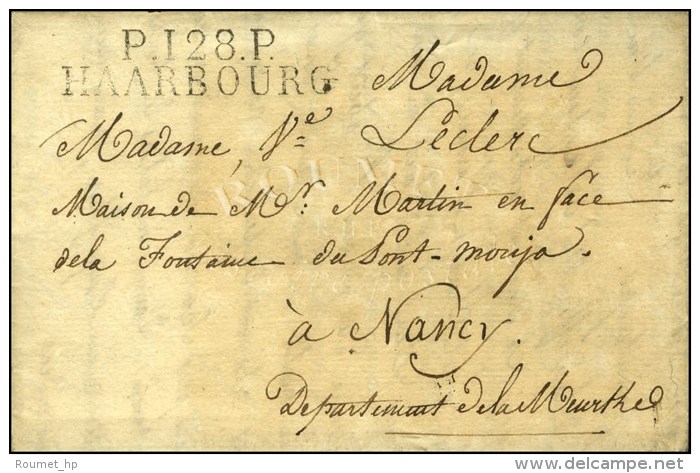 P.128.P.
HAARBOURG
Madame
Madame, Ve Leclerc
Maison de Mr. Martin en face
dela Fontaine du Pont-mouja.
à Nancy.
Departement de la Meurthe
ROUMET
Roumet_hp
www.delcampe.net